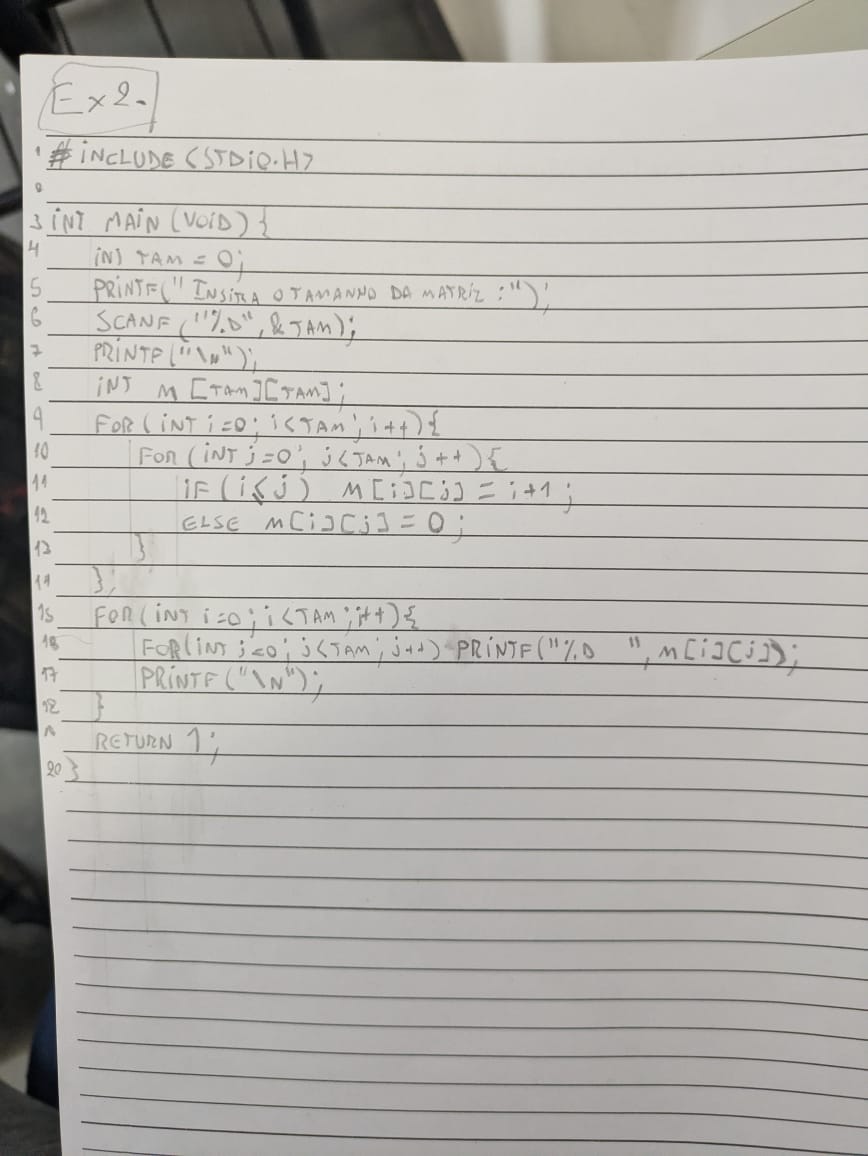 Ex2-
1 #INCLUDE <STDIO.H>
2
3 INT MAIN (VOID) {
4 INT TAM = 0;
5 PRINTF("INSIRA O TAMANHO DA MATRIZ :");
6 SCANF ("%D", &TAM);
7 PRINTF("\N");
8 INT M [TAM][TAM];
9 FOR (INT i=0; i<TAM; i++){
10 FOR (INT j=0; j<TAM; j++){
11 IF (i≤j) M[i][j] = i+1;
12 ELSE M[i][j] = 0;
13 }
14 };
15 FOR (INT i=0; i<TAM; i++){
16 FOR(INT j=0; j<TAM; j++) PRINTF("%D ", M[i][j]);
17 PRINTF("\N");
18 }
19 RETURN 1;
20 }